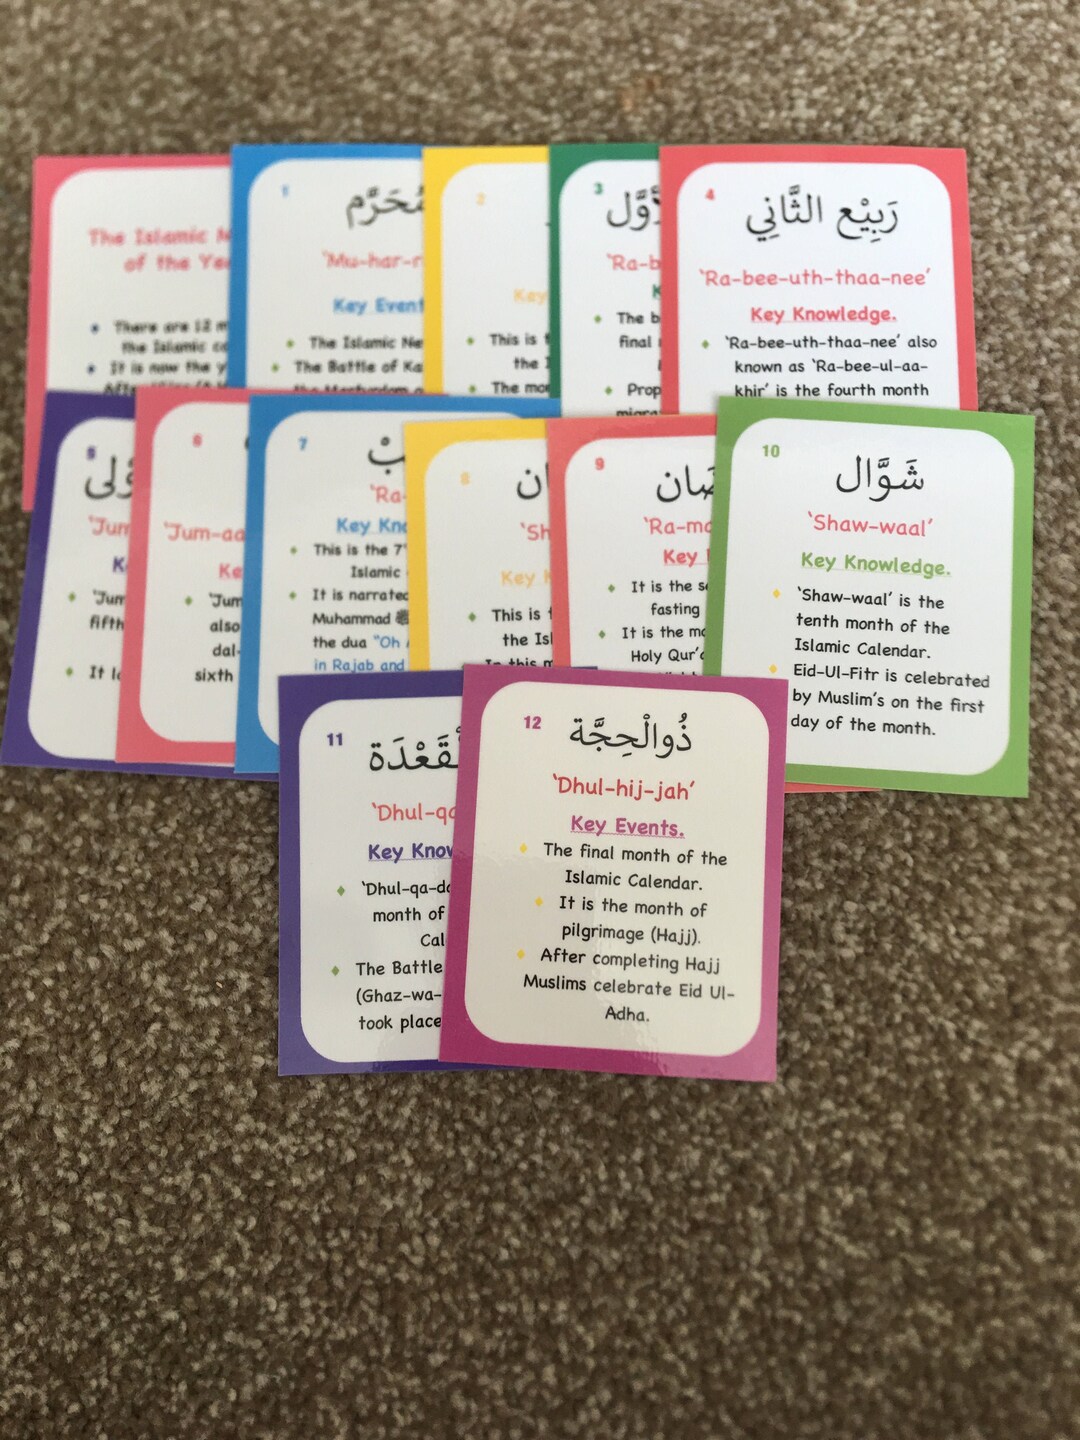 The Islamic
of the
There are 12
the Islamic
It is now the
1
مُحَرَّم
'Mu-har-r
Key Event
The Islamic Ne
The Battle of Ka
2
Key
This is
the I
The mo
3
'Ra-b
K
The b
final
Prop
4
رَبِيْع الثَّانِي
'Ra-bee-uth-thaa-nee'
Key Knowledge.
'Ra-bee-uth-thaa-nee' also
known as 'Ra-bee-ul-aa-
khir' is the fourth month
5
'Jum
K
'Jum
fifth
It
6
'Jum-aa
Ke
'Jum
also
dal-
sixth
7
'Ra-
Key Kno
This is the 7
Islamic
It is narrated
Muhammad ﷺ
the dua "Oh
in Rajab and
8
'Sh
Key K
This is
the Isl
In this m
9
'Ra-ma
Key
It is the se
fasting
It is the mo
Holy Qur'a
10
شَوَّال
'Shaw-waal'
Key Knowledge.
'Shaw-waal' is the
tenth month of the
Islamic Calendar.
Eid-Ul-Fitr is celebrated
by Muslim's on the first
day of the month.
11
'Dhul-qa
Key Know
'Dhul-qa-da
month of
Cal
The Battle
(Ghaz-wa-
took place
12
ذُوالْحِجَّة
'Dhul-hij-jah'
Key Events.
The final month of the
Islamic Calendar.
It is the month of
pilgrimage (Hajj).
After completing Hajj
Muslims celebrate Eid Ul-
Adha.